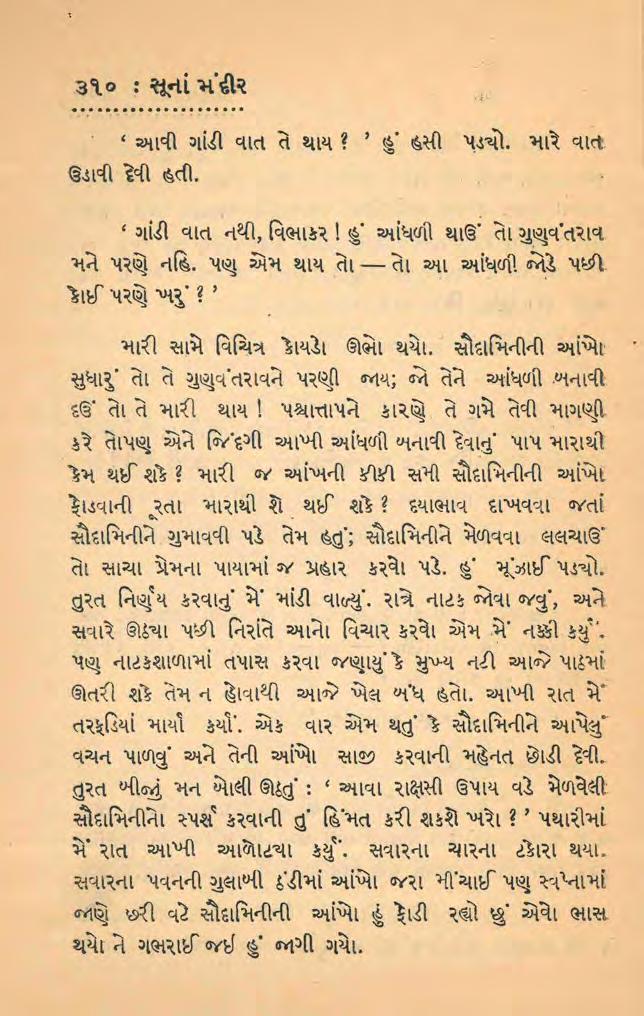 ૩૧૦ : સૂનાં મંદીર
‘ આવી ગાંડી વાત તે થાય ? ’ હું હસી પડ્યો. મારે વાત
ઉડાવી દેવી હતી.
‘ ગાંડી વાત નથી, વિભાકર ! હું આંધળી થાઉં તો ગુણવંતરાવ
મને પરણે નહિ. પણ એમ થાય તો — તો આ આંધળી જોડે પછી
કોઈ પરણે ખરું ? ’
મારી સામે વિચિત્ર કોયડો ઊભો થયો. સૌદામિનીની આંખો
સુધારું તો તે ગુણવંતરાવને પરણી જાય; જો તેને આંધળી બનાવી
દઉં તો તે મારી થાય ! પશ્ચાત્તાપને કારણે તે ગમે તેવી માગણી
કરે તોપણ એને જિંદગી આખી આંધળી બનાવી દેવાનું પાપ મારાથી
કેમ થઈ શકે ? મારી જ આંખની કીકી સમી સૌદામિનીની આંખો
ફોડવાની રતા મારાથી શે થઈ શકે ? દયાભાવ દાખવવા જતાં
સૌદામિનીને ગુમાવવી પડે તેમ હતું; સૌદામિનીને મેળવવા લલચાઉં
તો સાચા પ્રેમના પાયામાં જ પ્રહાર કરવો પડે. હું મૂંઝાઈ પડ્યો.
તુરત નિર્ણય કરવાનું મેં માંડી વાળ્યું. રાત્રે નાટક જોવા જવું, અને
સવારે ઊઠ્યા પછી નિરાંતે આનો વિચાર કરવો એમ મેં નક્કી કર્યું.
પણ નાટકશાળામાં તપાસ કરવા જણાયું કે મુખ્ય નટી આજે પાઠમાં
ઊતરી શકે તેમ ન હોવાથી આજે ખેલ બંધ હતો. આખી રાત મેં
તરફડિયાં માર્યાં કર્યાં. એક વાર એમ થતું કે સૌદામિનીને આપેલું
વચન પાળવું અને તેની આંખો સાજી કરવાની મહેનત છોડી દેવી.
તુરત બીજું મન બોલી ઊઠતું : ‘ આવા રાક્ષસી ઉપાય વડે મેળવેલી
સૌદામિનીનો સ્પર્શ કરવાની તું હિંમત કરી શકશે ખરો ? ’ પથારીમાં
મેં રાત આખી આળોટ્યા કર્યું. સવારના ચારના ટકોરા થયા.
સવારના પવનની ગુલાબી ઠંડીમાં આંખો જરા મીંચાઈ પણ સ્વપ્નામાં
જાણે છરી વટે સૌદામિનીની આંખો હું ફોડી રહ્યો છું એવો ભાસ
થયો ને ગભરાઈ જઇ હું જાગી ગયો.